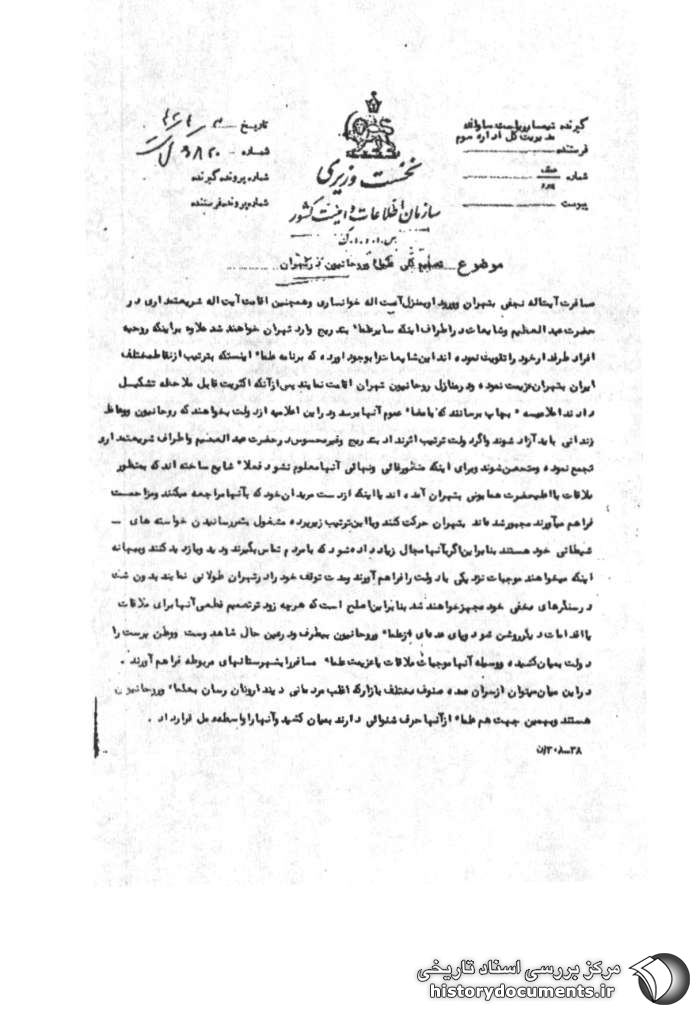 گیرنده تیمسار ریاست ساواک
مدیریت کل اداره سوم
فرستنده
شماره
پیوست
نخست وزیری
سازمان اطلاعات و امنیت کشور
س.ا.و.ا.ک
تاریخ
شماره
شماره پرونده گیرنده
شماره پرونده فرستنده
موضوع تصمیم کلی علماء و روحانیون در تهران
مسافرت آیت‌اله نجفی بتهران و ورود او بمنزل آیت اله خوانساری و همچنین اقامت آیت اله شریعتمداری در
حضرت عبدالعظیم و شایعات در اطراف اینکه سایر علماء بتدریج وارد تهران خواهند شد علاوه بر اینکه روحیه
افراد طرفدار خود را تقویت نموده اند این شایعات را بوجود آورده که برنامه علماء اینستکه بترتیب از نقاط مختلف
ایران بتهران عزیمت نموده و در منازل روحانیون تهران اقامت نمایند پس از آنکه اکثریت قابل ملاحظه تشکیل
دادند اعلامیه بچاپ برسانند که بامضاء عموم آنها برسد و در این اعلامیه از دولت بخواهند که روحانیون و وعاظ
زندانی باید آزاد شوند و اگر دولت ترتیب اثر نداد بتدریج و غیر محسوس در حضرت عبدالعظیم و اطراف شریعتمداری
تجمع نموده و متحصن شوند و برای اینکه منظور غائی و نهائی آنها معلوم نشود فعلا شایع ساخته اند که بمنظور
ملاقات با اعلیحضرت همایونی بتهران آمده اند یا اینکه از دست مریدان خود که بآنها مراجعه میکنند و مزاحمت
فراهم میآورند مجبور شده‌اند بتهران حرکت کنند و با این ترتیب زیر پرده مشغول بثمر رسانیدن خواسته های
شیطانی خود هستند بنابراین اگر بآنها مجال زیاد داده شود که با مردم تماس بگیرند و دید و بازدید کنند و ببهانه
اینکه میخواهند موجبات نزدیکی با دولت را فراهم آورند و مدت توقف خود را در تهران طولانی نمایند بدون شک
در سنگرهای مخفی خود مجهز خواهند شد بنابراین اصلح است که هرچه زودتر تصمیم قطعی آنها برای ملاقات
یا اقدامات دیگر روشن شود و پای عده‌ای از علماء و روحانیون بیطرف و در عین حال شاهدوست و وطن پرست را
دولت بمیان کشیده و وسیله آنها موجبات ملاقات یا عزیمت علماء مسافر را بشهرستانهای مربوطه فراهم آورند .
در این میان میتوان از سران عمده صنوف مختلف بازار که اغلب مردمانی دیندار و نان رسان بعلماء و روحانیون
هستند و بهمین جهت هم علماء از آنها حرف شنوائی دارند بمیان کشید و آنها را واسطه عمل قرار داد .
مرکز بررسی اسناد تاریخی
historydocuments.ir